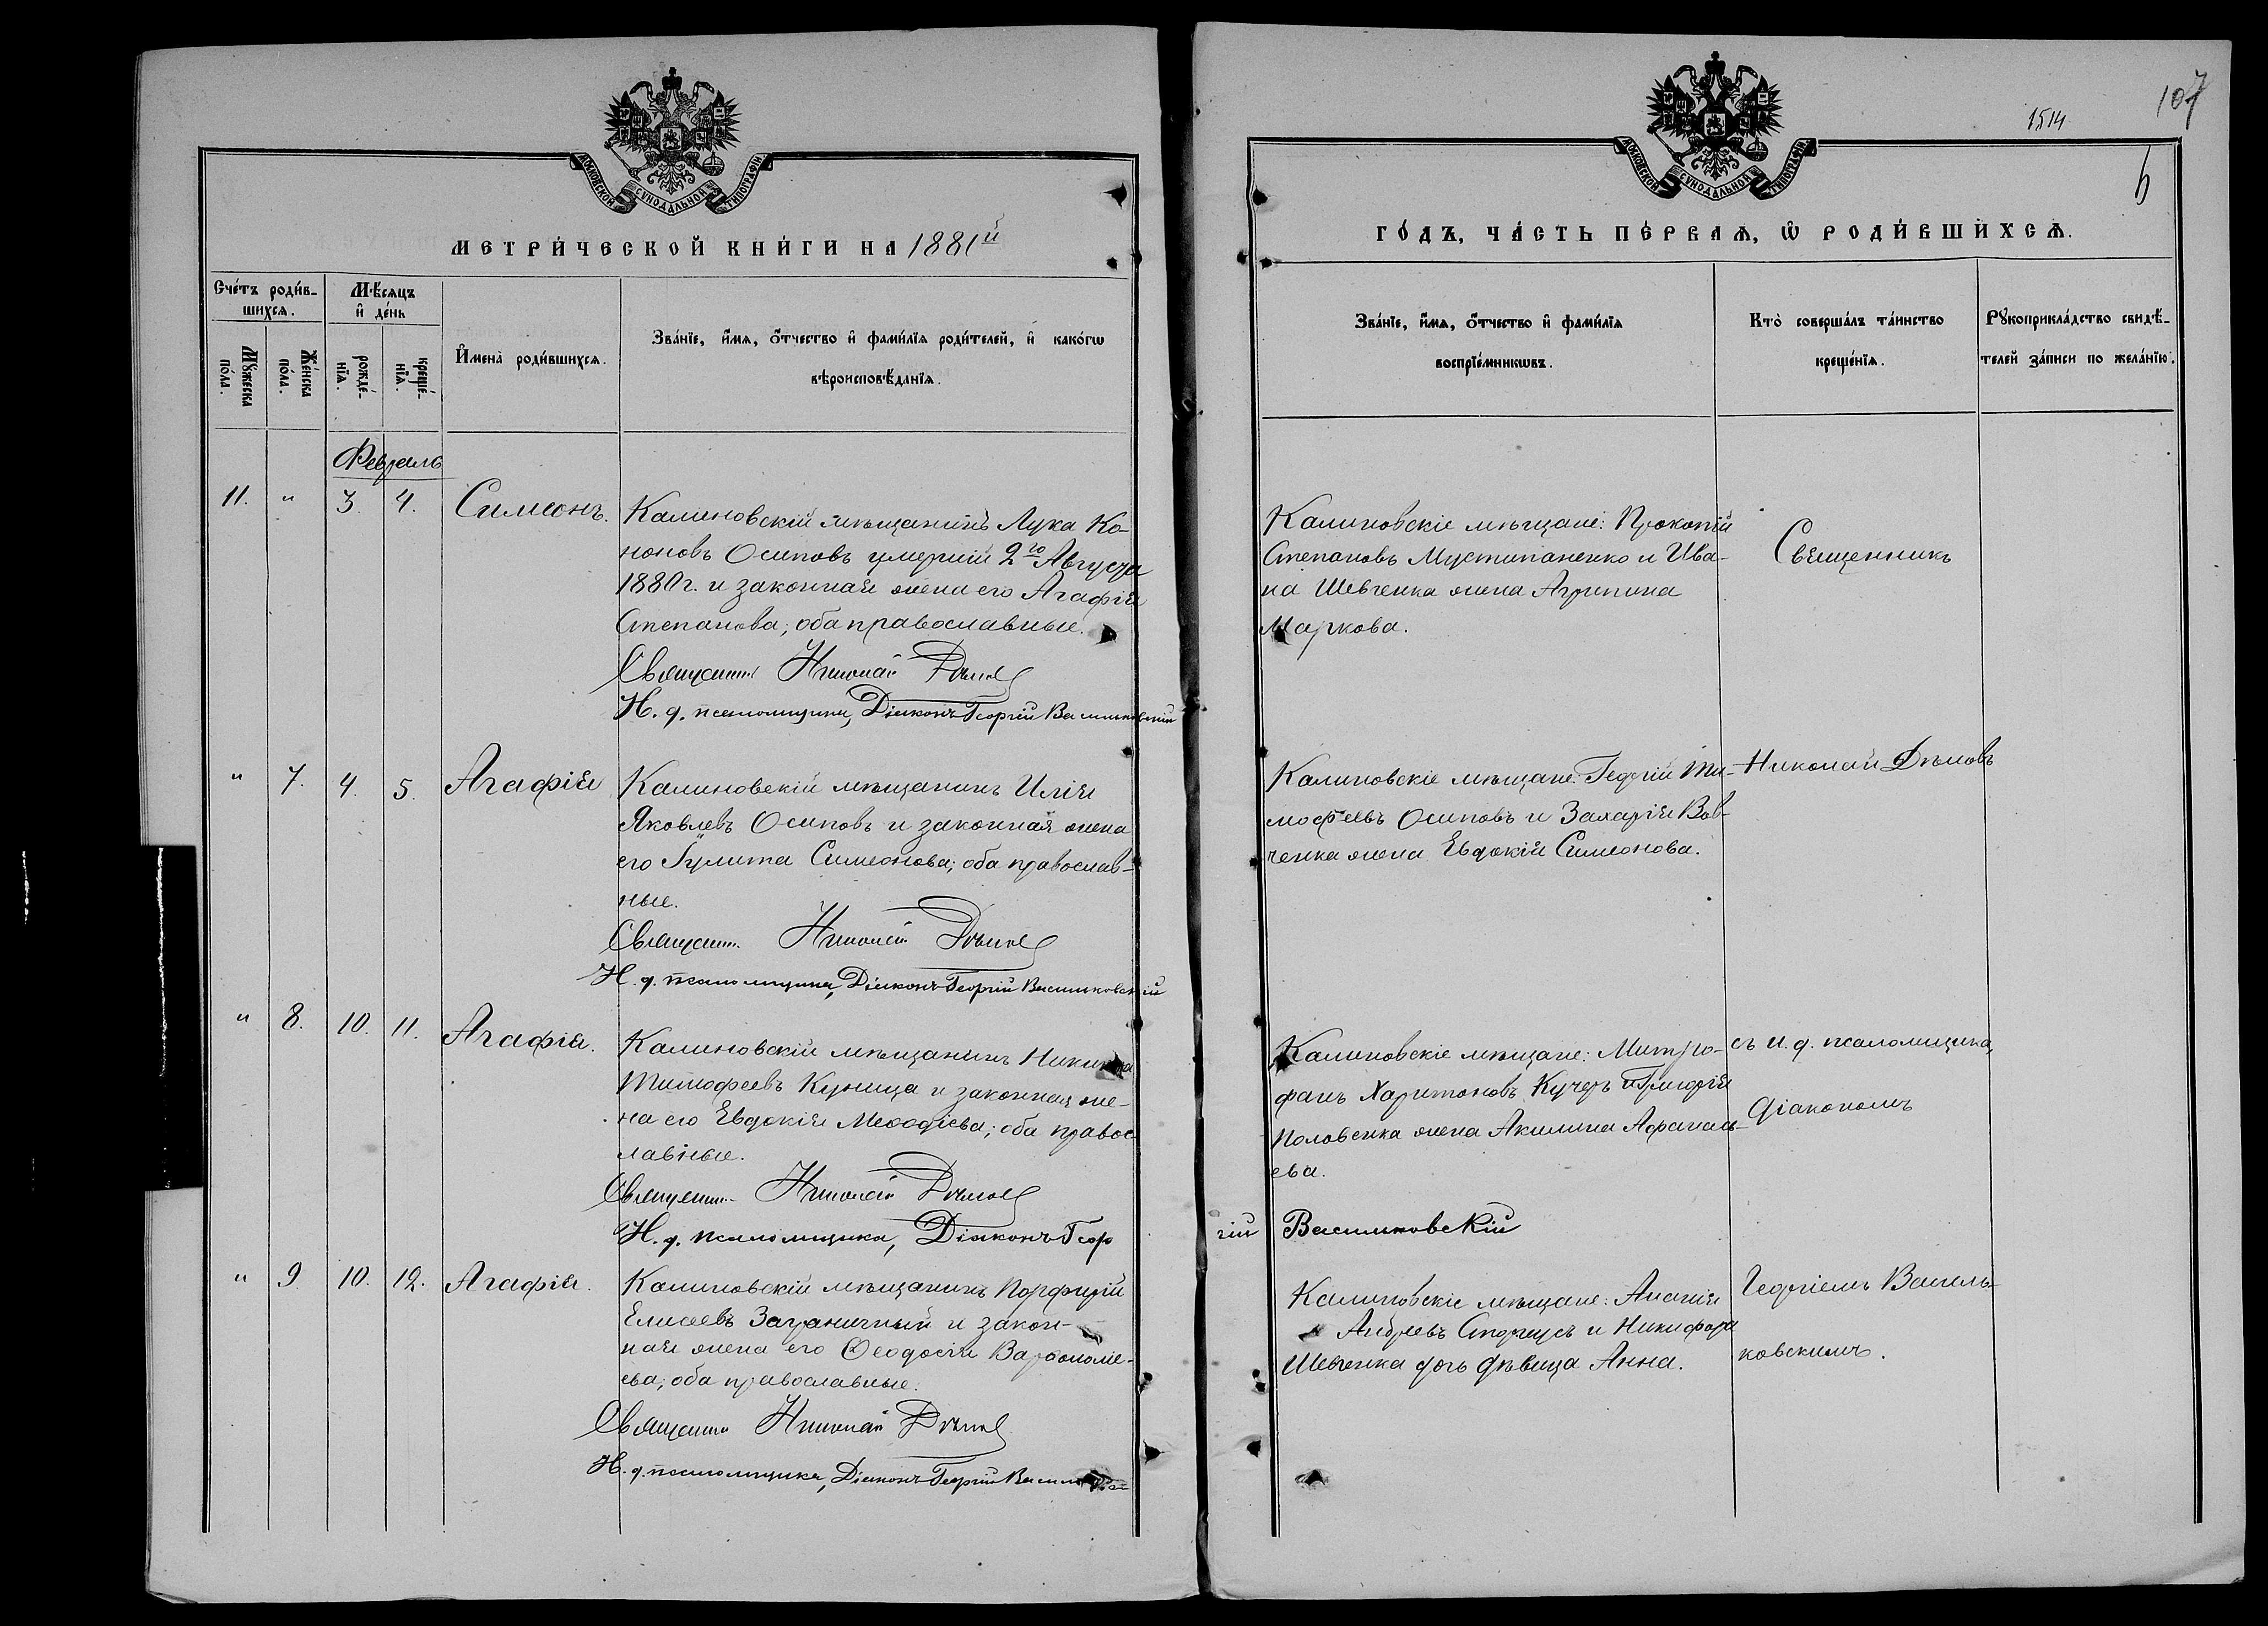 МОСКОВСКОЙ СѴНОДАЛЬНОЙ ТИПОГРАФІИ
МЕТРИ́ЧЕСКОЙ КНИ́ГИ НА 1881й
Сче́тъ роди́в-
шихсѧ.
Мѣ́сѧцъ
и҆ де́нь
И҆мена̀ роди́вшихсѧ.
Зва́нїе, и҆́мѧ, ѻ҆́тчество и҆ фами́лїѧ роди́телей, и҆ како́гѡ
вѣроисповѣ́данїѧ.
Мꙋ́жеска
по́ла.
Же́нска
по́ла.
рожде́-
нїѧ.
креще́-
нїѧ.
Февраль
11. " 3. 4. Симеонъ.
Калиновскій мѣщанинъ Лука Ко-
ноновъ Осиповъ умершій 2го Августа
1880 г. и законная жена его Агафія
Степанова; оба православные.
Священникъ Николай
И. д. псаломщика, Діаконъ Георгій Васильковскій
" 7. 4. 5. Агафія
Калиновскій мѣщанинъ Илія
Яковлевъ Осиповъ и законная жена
его Іулита Симеонова; оба православ-
ные.
Священникъ Николай
И. д. псаломщика, Діаконъ Георгій Васильковскій
" 8. 10. 11. Агафія.
Калиновскій мѣщанинъ Никита
Тимофеевъ Куница и законная же-
на его Евдокія Меѳодіева; оба правос-
лавные.
Священникъ Николай
И. д. псаломщика, Діаконъ Геор
" 9 10. 12. Агафія.
Калиновскій мѣщанинъ Порфирій
Елисеевъ Заграничный и закон-
ная жена его Ѳеодосія Варѳоломе-
ева; оба православные.
Священникъ Николай
И. д. псаломщика, Діаконъ Георгій
107
1514
6
МОСКОВСКОЙ СѴНОДАЛЬНОЙ ТИПОГРАФІИ
ГО́ДЪ, ЧА́СТЬ ПЕ́РВАѦ, Ѡ҆ РОДИ́ВШИХСѦ.
Зва́нїе, и҆́мѧ, ѻ҆́тчество и҆ фами́лїѧ
воспрїе́мникѡвъ.
Кто̀ соверша́лъ та́инство
креще́нїѧ.
Рꙋкоприкла́дство свидѣ́-
телей за́писи по жела́нїю.
Калиновскіе мѣщане: Прокопій
Степановъ Мустипаненко и Ива-
на Шевченка жена Агрипина
Маркова.
Священникъ
Калиновскіе мѣщане: Георгій Ти-
мофеевъ Осиповъ и Захарія Вов-
ченка жена Евдокія Симеонова.
Николай Дѣмовъ
Калиновскіе мѣщане: Митро-
фанъ Харитоновъ Кучеръ и Григорія
Половенка жена Акилина Афанась-
ева.
съ и. д. псаломщика,
діакономъ
гій Васильковскій
Калиновскіе мѣщане: Ананія
Андреевъ и Никифора
Шевченка дочь дѣвица Анна.
Георгіемъ Василь-
ковскимъ.